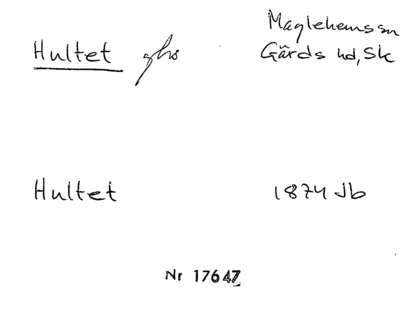 Maglehems sn
Hultet ghs Gärds hd, Sk
Hultet 1874 Jb
Nr 17647